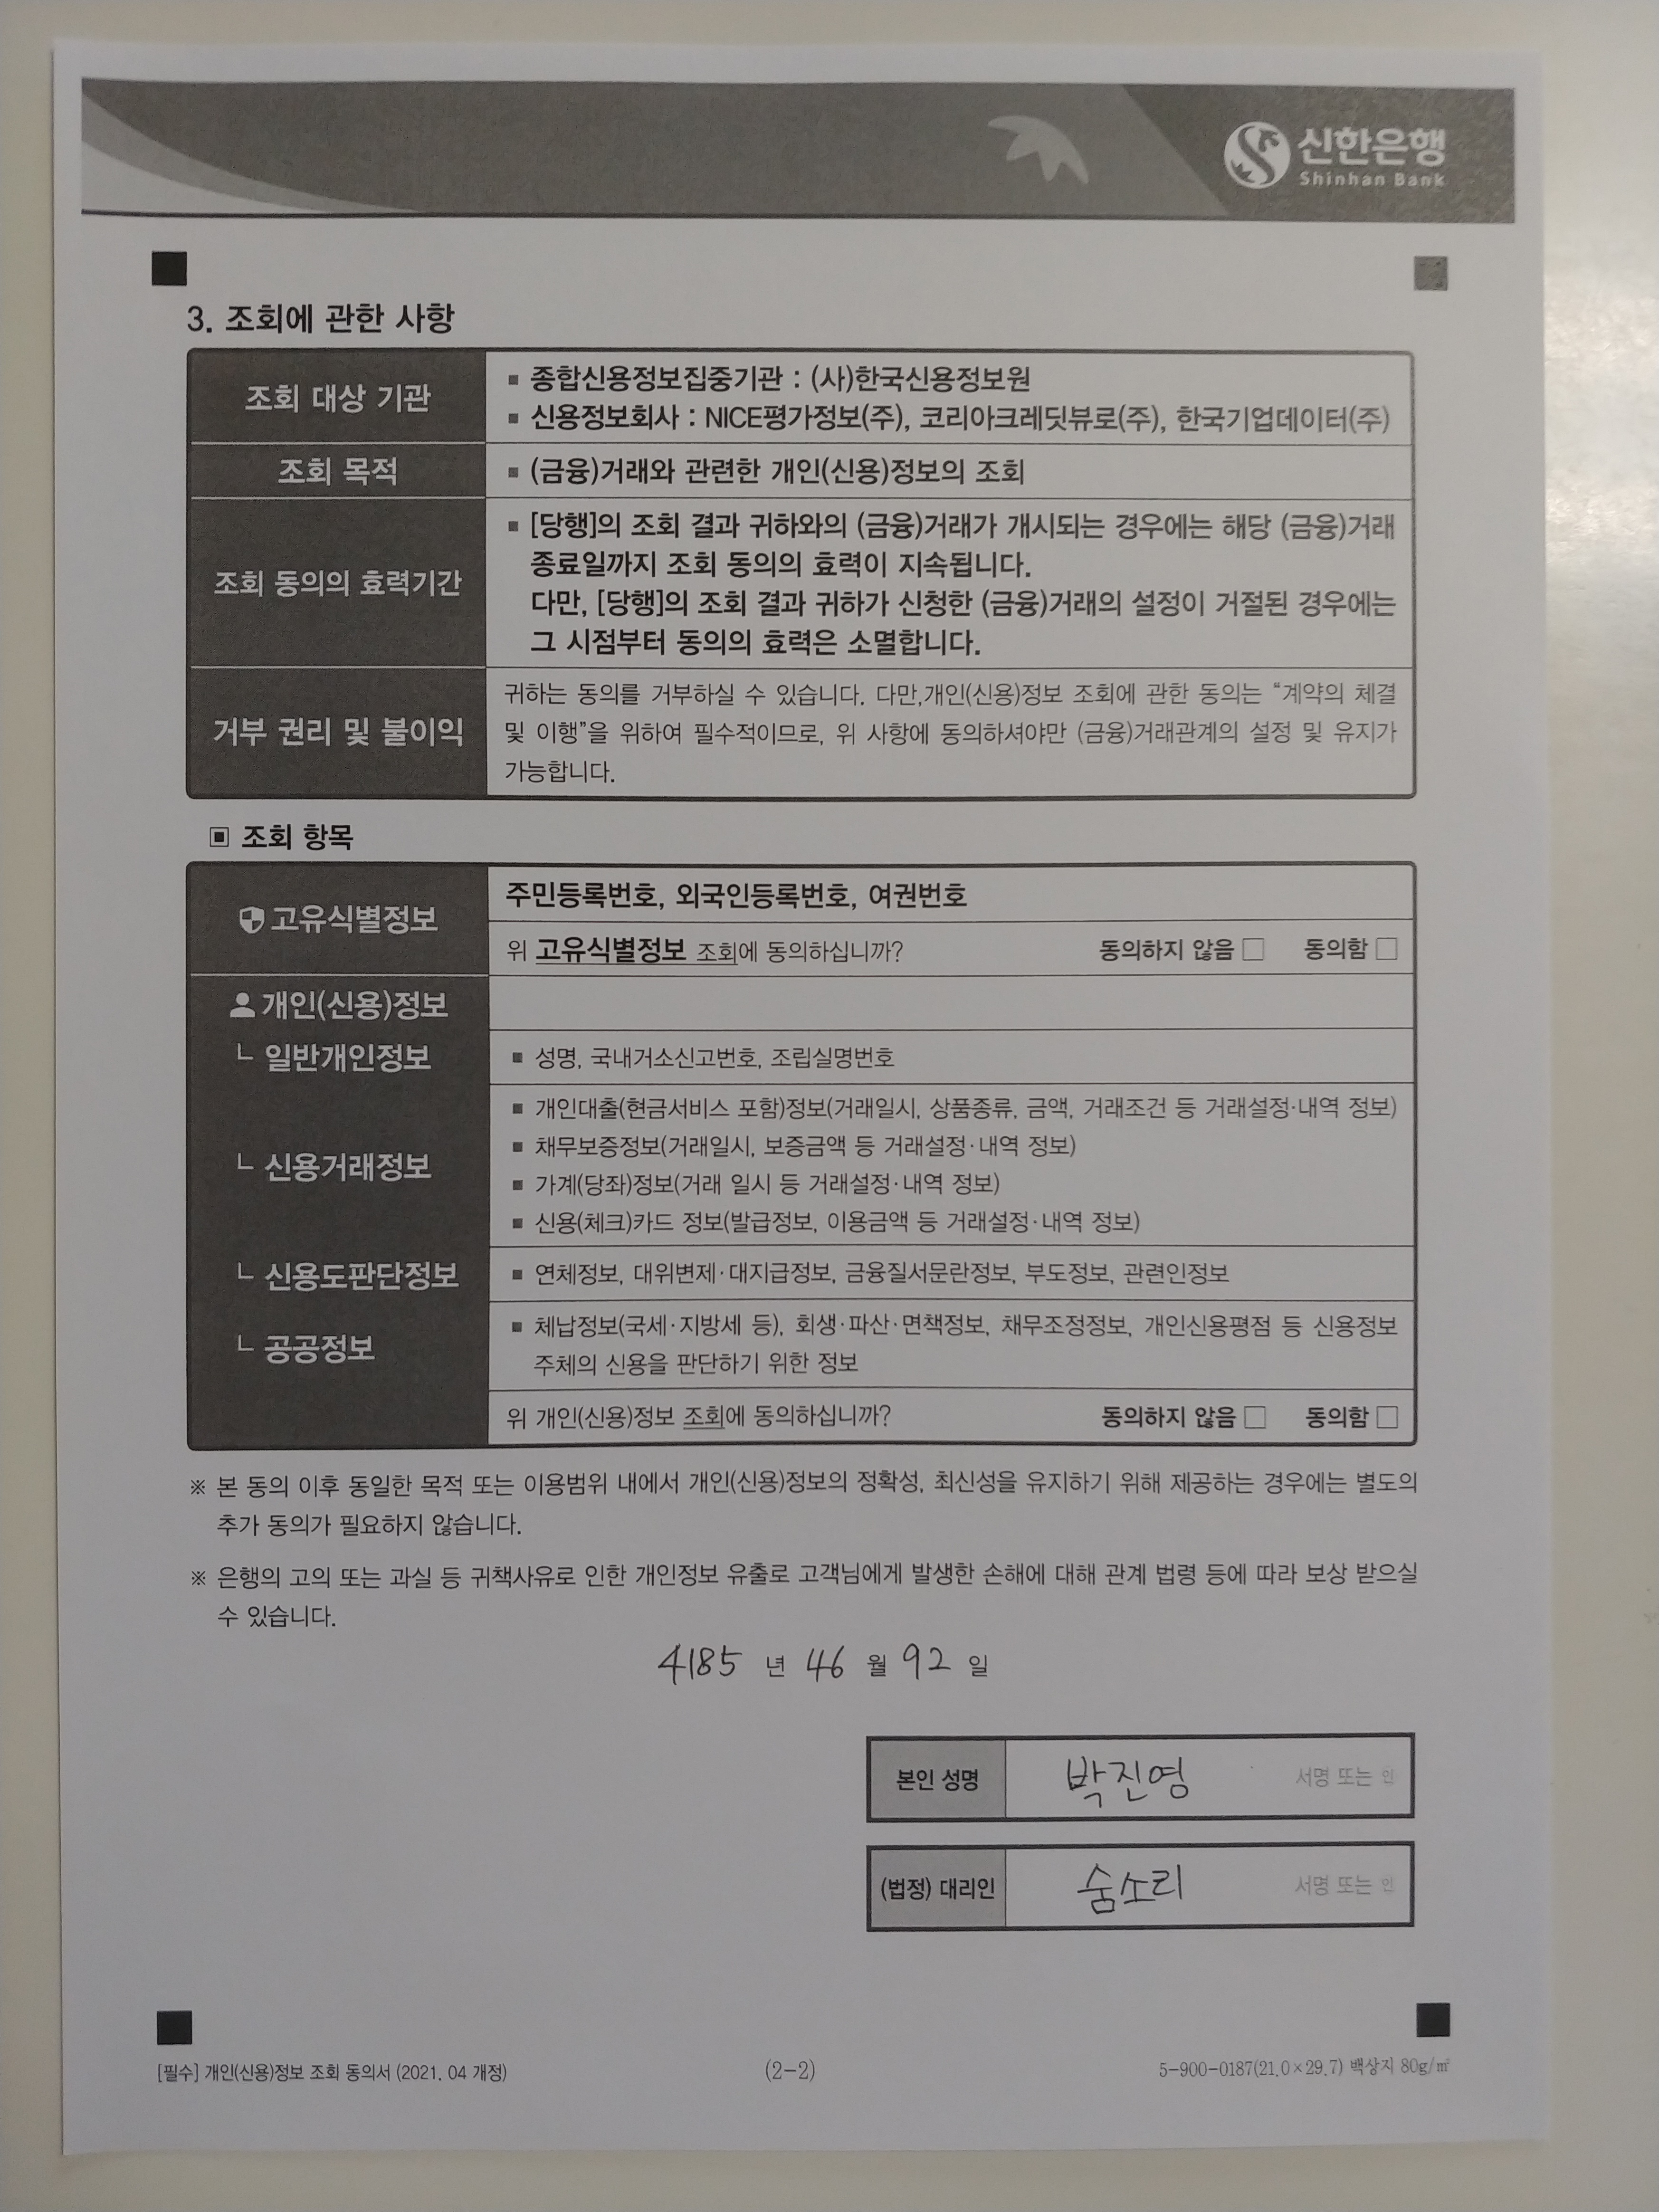 신한은행
Shinhan Bank
3. 조회에 관한 사항
조회 대상 기관
▪ 종합신용정보집중기관 : (사)한국신용정보원
▪ 신용정보회사 : NICE평가정보(주), 코리아크레딧뷰로(주), 한국기업데이터(주)
조회 목적
▪ (금융)거래와 관련한 개인(신용)정보의 조회
조회 동의의 효력기간
▪ [당행]의 조회 결과 귀하와의 (금융)거래가 개시되는 경우에는 해당 (금융)거래
종료일까지 조회 동의의 효력이 지속됩니다.
다만, [당행]의 조회 결과 귀하가 신청한 (금융)거래의 설정이 거절된 경우에는
그 시점부터 동의의 효력은 소멸합니다.
거부 권리 및 불이익
귀하는 동의를 거부하실 수 있습니다. 다만,개인(신용)정보 조회에 관한 동의는 “계약의 체결
및 이행”을 위하여 필수적이므로, 위 사항에 동의하셔야만 (금융)거래관계의 설정 및 유지가
가능합니다.
▣ 조회 항목
고유식별정보
주민등록번호, 외국인등록번호, 여권번호
위 고유식별정보 조회에 동의하십니까? 동의하지 않음 □ 동의함 □
개인(신용)정보
└ 일반개인정보
▪ 성명, 국내거소신고번호, 조립실명번호
└ 신용거래정보
▪ 개인대출(현금서비스 포함)정보(거래일시, 상품종류, 금액, 거래조건 등 거래설정·내역 정보)
▪ 채무보증정보(거래일시, 보증금액 등 거래설정·내역 정보)
▪ 가계(당좌)정보(거래 일시 등 거래설정·내역 정보)
▪ 신용(체크)카드 정보(발급정보, 이용금액 등 거래설정·내역 정보)
└ 신용도판단정보
▪ 연체정보, 대위변제·대지급정보, 금융질서문란정보, 부도정보, 관련인정보
└ 공공정보
▪ 체납정보(국세·지방세 등), 회생·파산·면책정보, 채무조정정보, 개인신용평점 등 신용정보
주체의 신용을 판단하기 위한 정보
위 개인(신용)정보 조회에 동의하십니까? 동의하지 않음 □ 동의함 □
※ 본 동의 이후 동일한 목적 또는 이용범위 내에서 개인(신용)정보의 정확성, 최신성을 유지하기 위해 제공하는 경우에는 별도의
추가 동의가 필요하지 않습니다.
※ 은행의 고의 또는 과실 등 귀책사유로 인한 개인정보 유출로 고객님에게 발생한 손해에 대해 관계 법령 등에 따라 보상 받으실
수 있습니다.
4185 년 46 월 92 일
본인 성명 박진영 서명 또는 인
(법정) 대리인 숨소리 서명 또는 인
[필수] 개인(신용)정보 조회 동의서 (2021. 04 개정)
(2-2)
5-900-0187(21.0×29.7) 백상지 80g/㎡